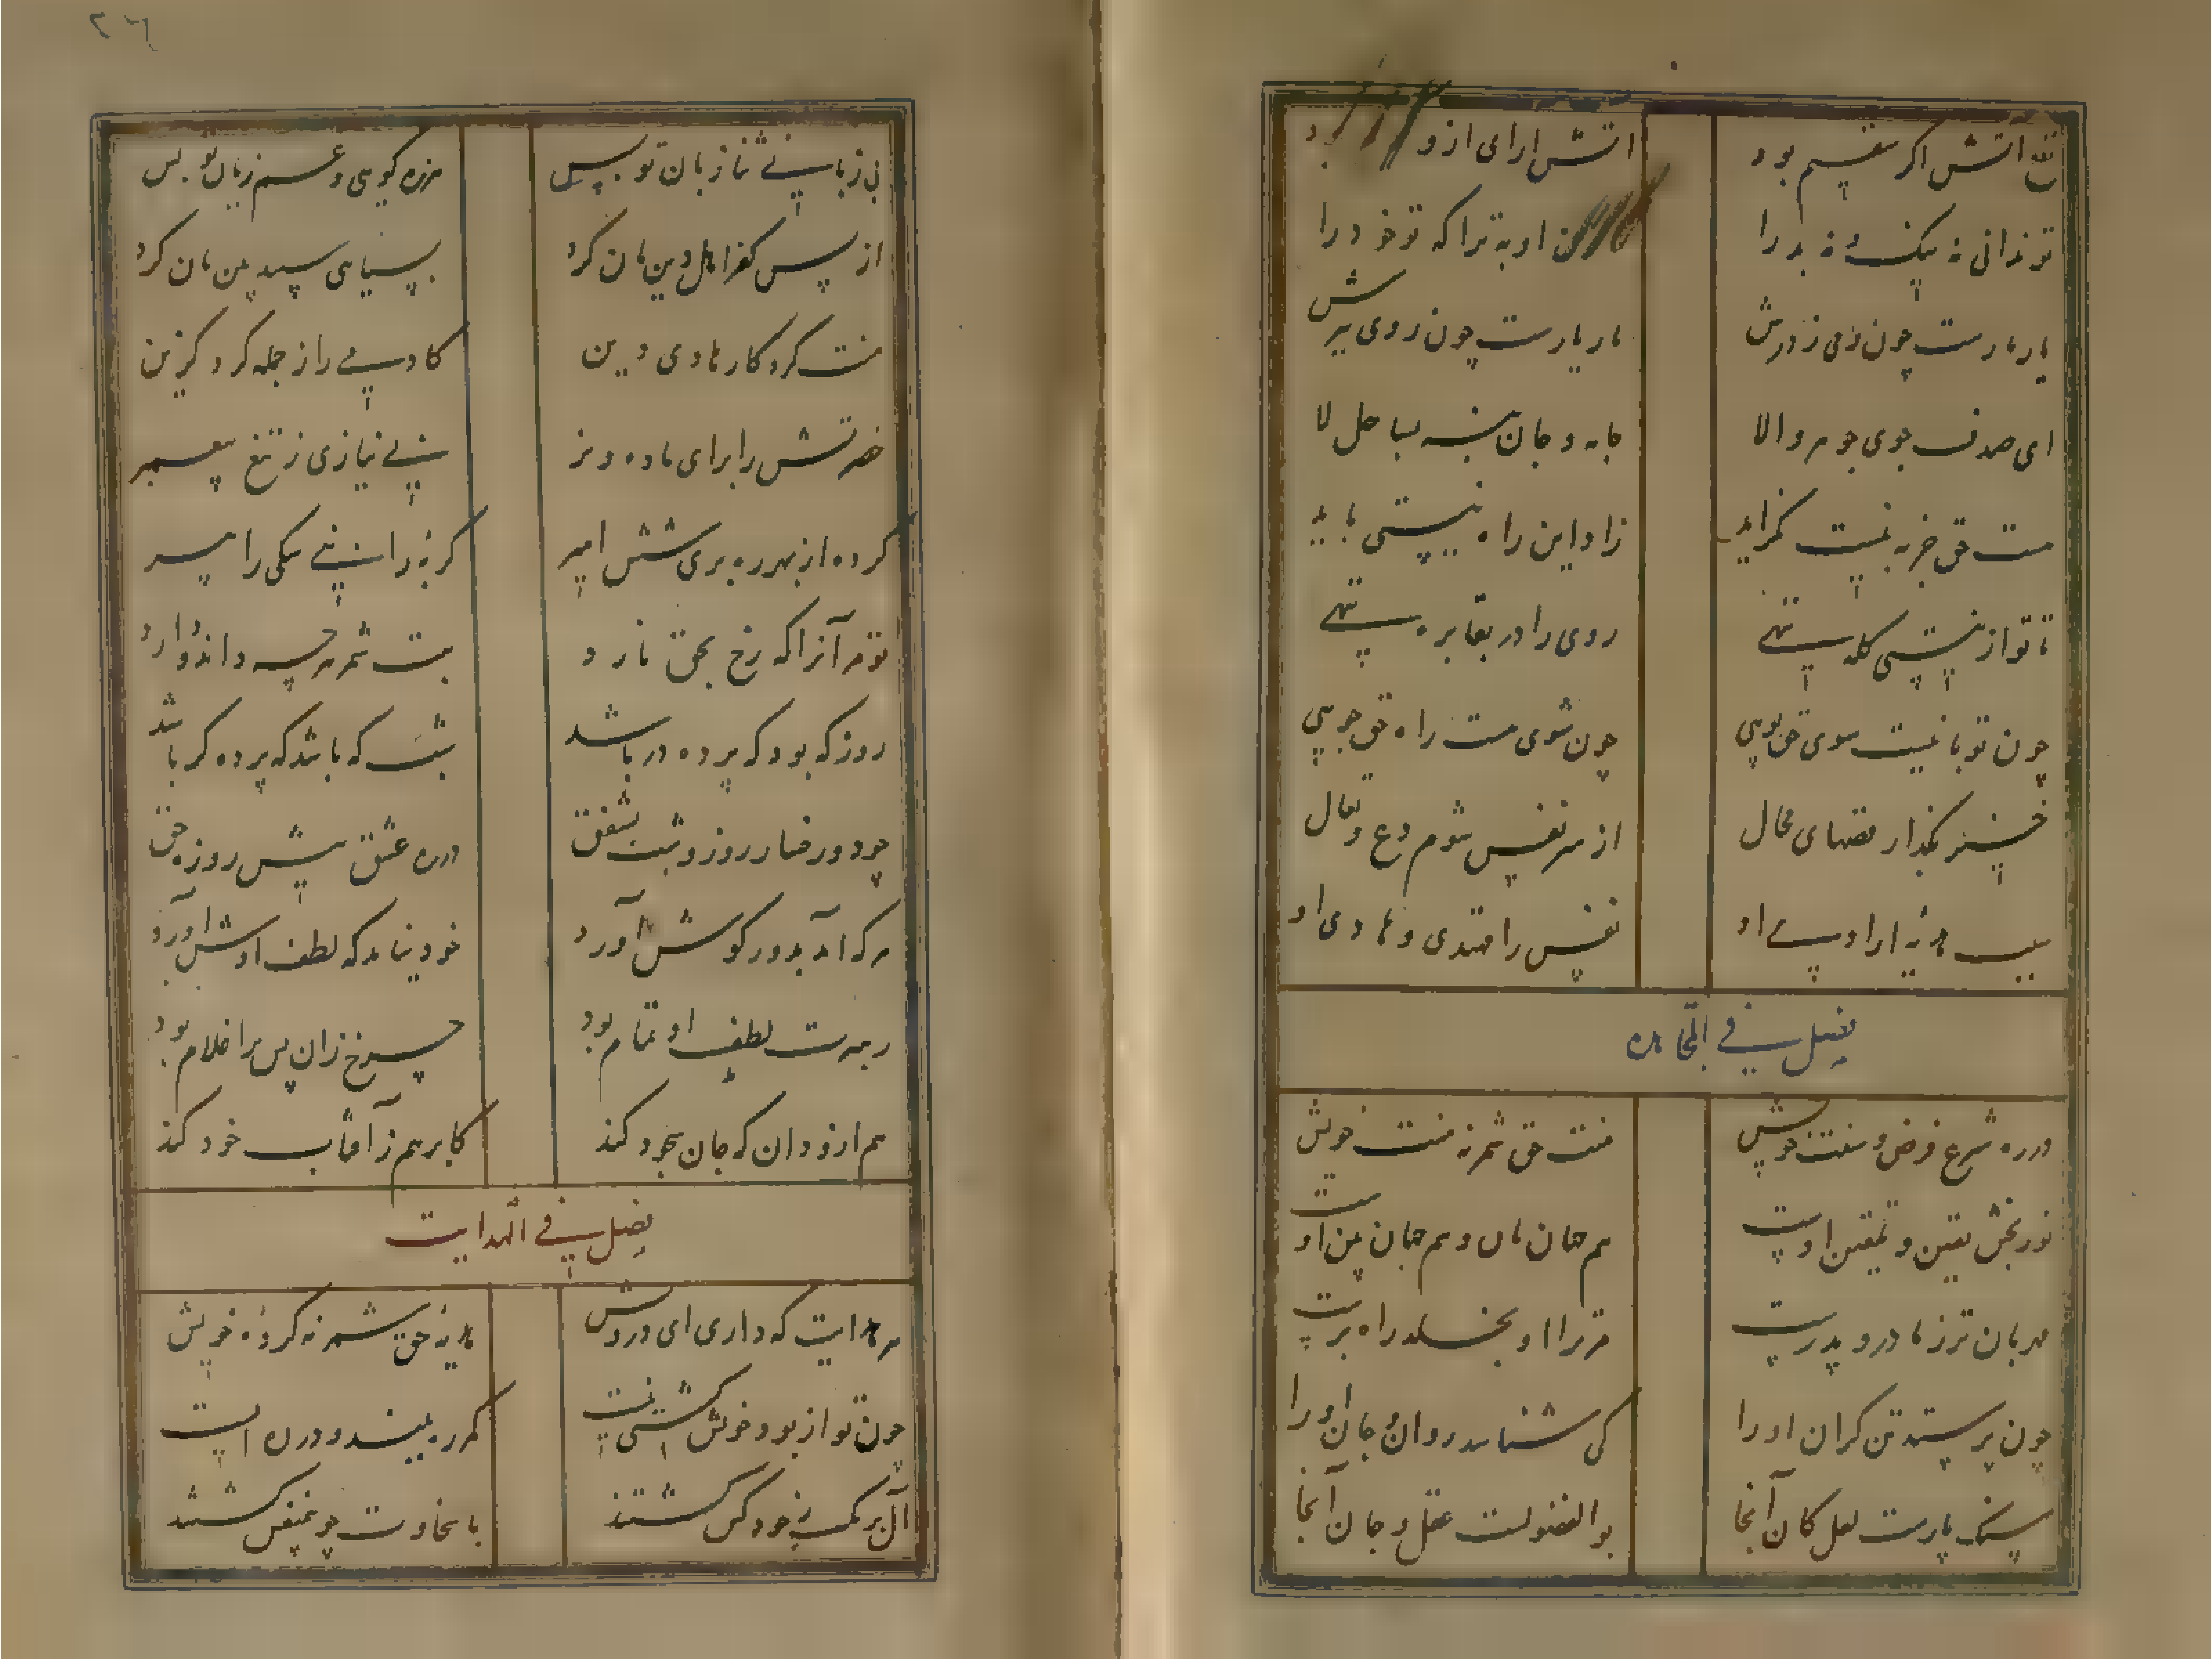 تف آتش اگر مقیم بود    اتش ارای ازو بود
تو ندانی نه نیک و نه بد را    او به ترا که تو خود را
یار مارست چون زنی در زدرش    مار یارست چون ز روی برش
ای صدف جوی جوهر والا    جامه و جان بنه بساحل لا
هست حق جز به نیست نگراید    زاد این راه نیستی باید
تا تو از نیستی کله ننهی    روی را در بقا بره ننهی
چون تو با نیست سوی حق پویی    چون شوی هست راه حق جویی
خیز بگذار نقشهای محال    از سر نفس شوم دع و تعال
سبب هدیه ارادی او    نفس را مهتدی و هادی او
فصل فی المجاهده
در ره شرع فرض و سنت خویش    منت حق شمر نه منت خویش
نور بخش یقین و تلقین اوست    هم جهان بان و هم جهان بین اوست
مهربان تر ز مادر و پدرست    مر ترا او بخلد راه برست
چون پرستد تن گران او را    کی شناسد روان و جان او را
سنگ پارست لعل کان آنجا    بوالفضولست عقل و جان آنجا
بی زبانی ثنا زبان تو بس    هرزه گویی و غم زیان تو بس
از پس کفر اهل دین مان کرد    بسیاهی سپید بین مان کرد
منت کردگار هادی بین    کادمی را ز جمله کرد گزین
حضرتش را برای ماده و نر    بی نیازی ز تیغ پیغمبر
کرده از بهر ره بری شش امیر    گربه را نبی سگی را میر
تو مر آنرا که رخ بحق نارد    بت شمر هر چه داند و آرد
روز که بود که پرده در باشد    شب که باشد که پرده گر باشد
چو دو رخسار روز و شب شفق    در ره عشق پیش روزه حق
هر که آمد بدو و گوش آورد    خود نیامد که لطف اوش آورد
رهبرت لطف او تمام بود    چرخ زان پس ترا غلام بود
هم ازو دان که جان سجود کند    کابر هم ز آفتاب خود کند
فصل فی الهدایت
هر هدایت که داری ای درویش    هدیه حق شمر نه کرده خویش
چون تو از بود خویش گشتی نیست    کمر ره ببند و در ره ایست
آل برمک ز جود کس گشتند    با سخاوت چو هم نفس گشتند